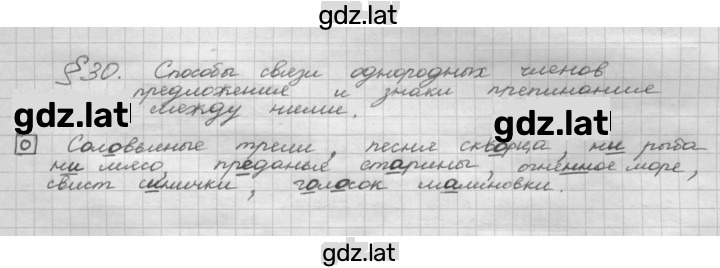 gdz.lat
§30. Способы связи однородных членов
предложения и знаки препинания
между ними.
gdz.lat
gdz.lat
0 Соловьиные трели, песня скворца, ни рыба
ни мясо, преданье старины, огненное море,
свист синички, голосок малиновки.
gdz.lat